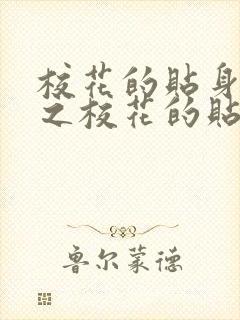 校花的贴身
之校花的贴
鲁尔蒙德